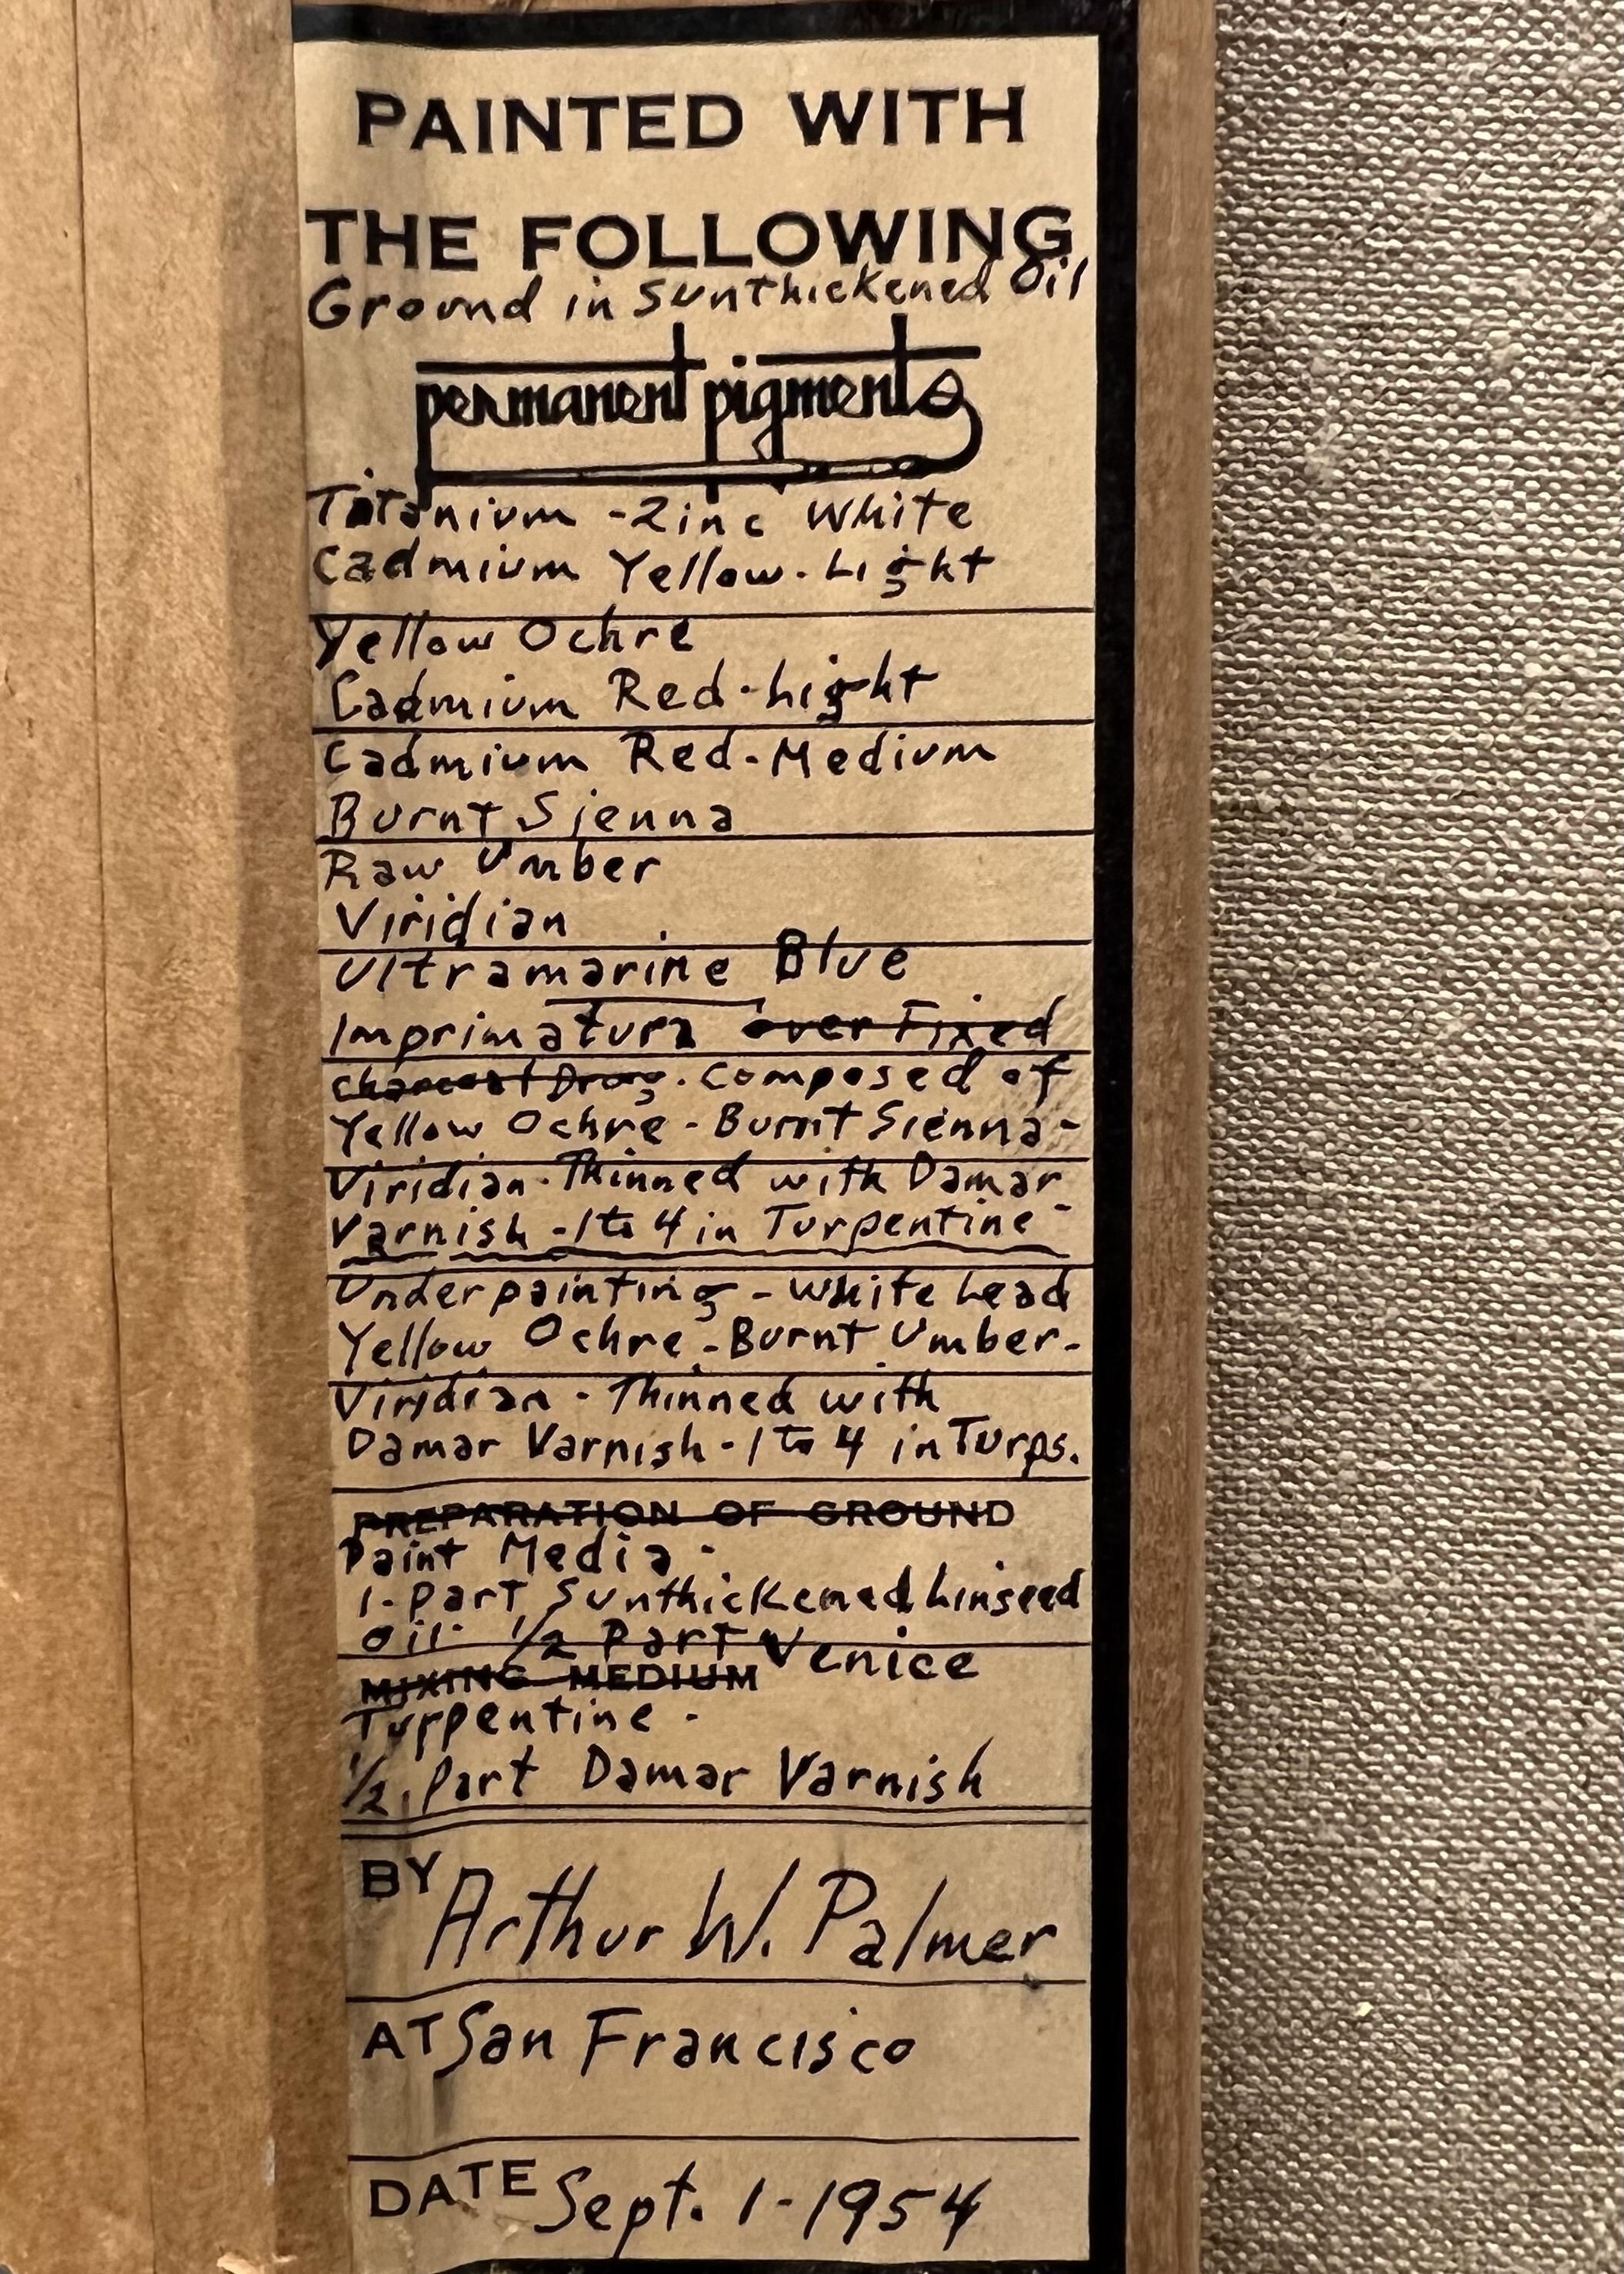 PAINTED WITH
THE FOLLOWING
Ground in Sunthickened Oil
permanent pigments
Titanium - Zinc White
Cadmium Yellow - Light
Yellow Ochre
Cadmium Red - Light
Cadmium Red - Medium
Burnt Sienna
Raw Umber
Viridian
Ultramarine Blue
Imprimatura over Fixed
Charcoal Drawg. Composed of
Yellow Ochre - Burnt Sienna -
Viridian - Thinned with Damar
Varnish - 1 to 4 in Turpentine -
Underpainting - White Lead
Yellow Ochre - Burnt Umber -
Viridian - Thinned with
Damar Varnish - 1 to 4 in Turps.
PREPARATION OF GROUND
Paint Media -
1 - Part Sunthickened Linseed
Oil - 1/2 Part Venice
MIXING MEDIUM
Turpentine -
1/2 Part Damar Varnish
BY Arthur W. Palmer
AT San Francisco
DATE Sept. 1 - 1954